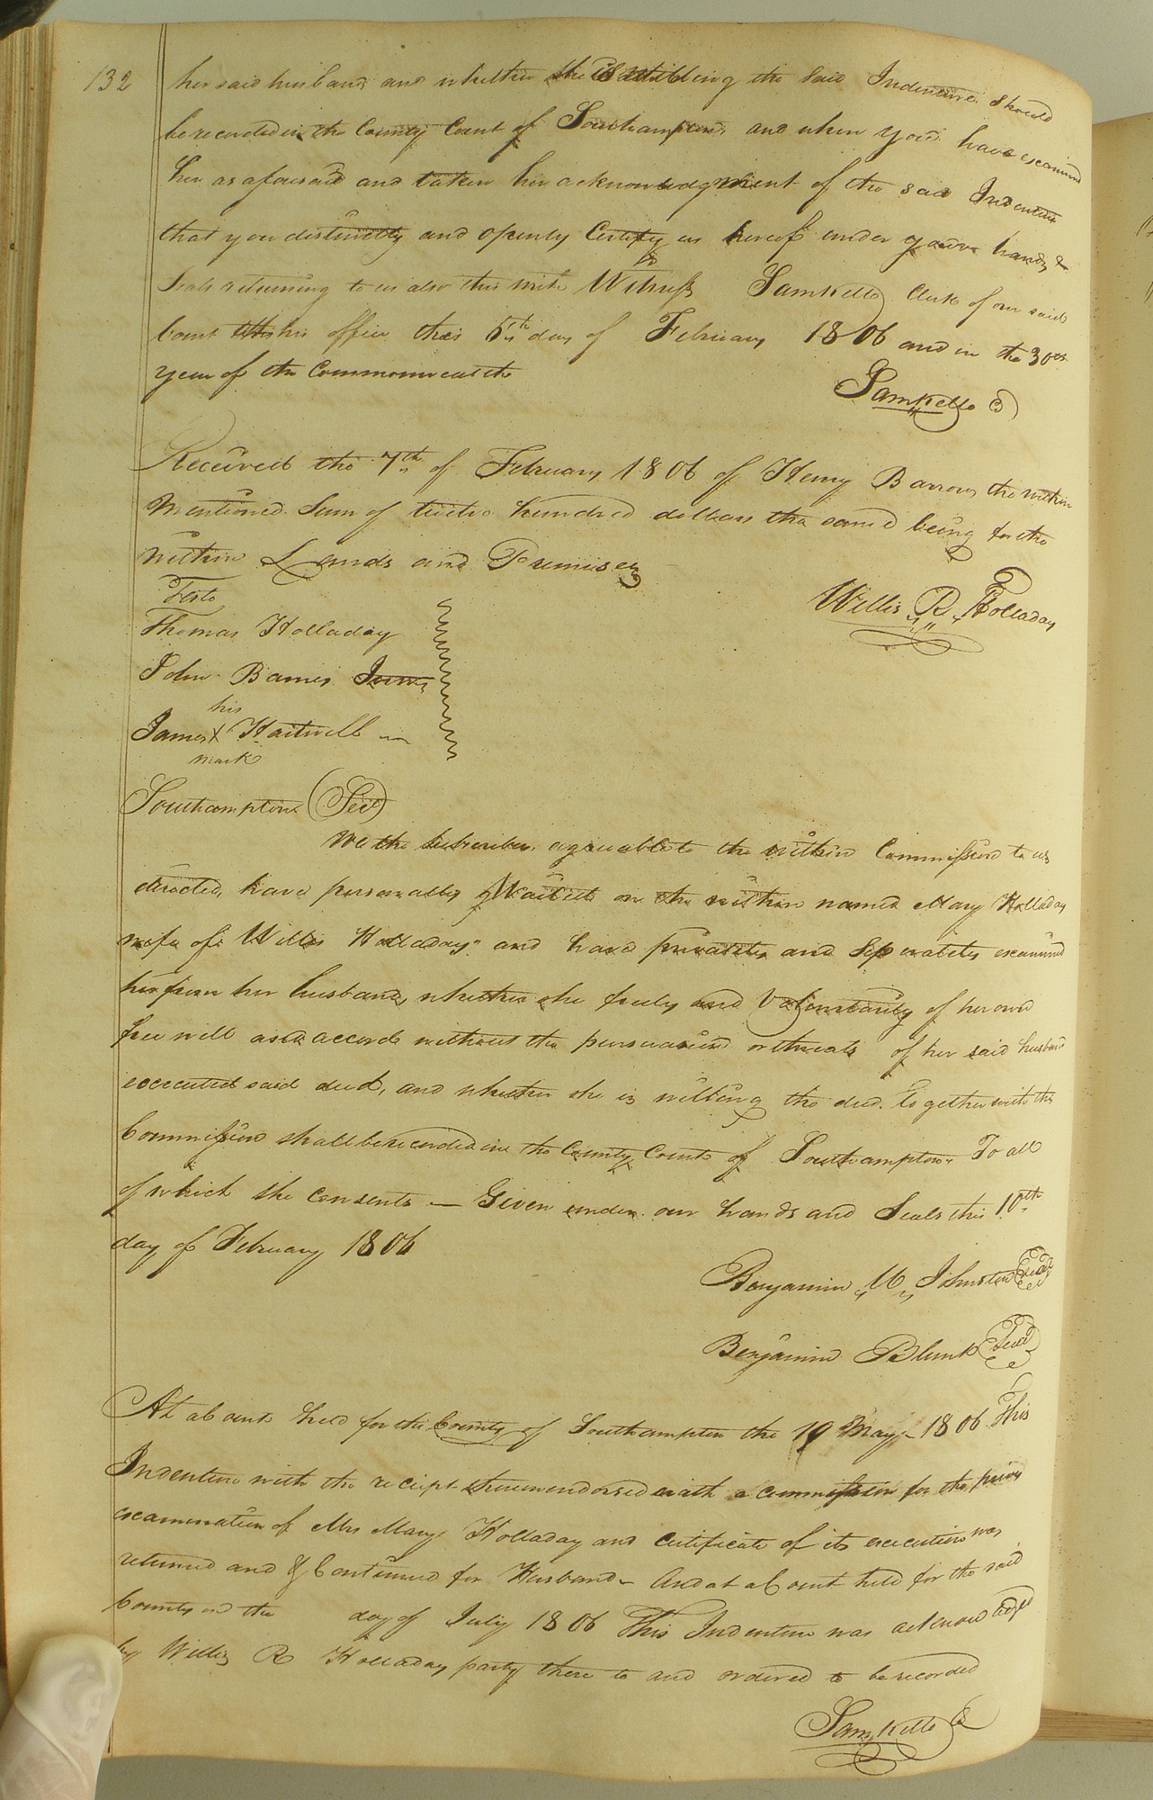 132
her said husband and whether she is willing the said Indenture should
be recorded in the County Court of Southampton and when you have examined
her as aforesaid and taken her acknowledgment of the said Indenture
that you distinctly and openly Certify us hereof under your hands &
Seals returning to us also this writ Witness Sam Kello Clerk of our said
Court at his office this 5th day of February 1806 and in the 30th
year of the Commonwealth
Sam Kello C
Received the 7th of February 1806 of Henry Barrow the within
Mentioned Sum of twelve hundred dollars the same being for the
within Lands and Premises
Willis R Holladay
Teste
Thomas Holladay
John Barnes Junr
his
James X Hartwell
mark
Southampton (Sct)
We the subscribers agreeable to the within Commission to us
directed, have personally Waited on the within named Mary Holladay
wife of Willis Holladay and have privately and Seperately examined
her from her husband, whether she freely and Voluntarily of her own
free will and accord without the persuasion or threats of her said husband
executed said deed, and whether she is willing the deed together with the
Commission shall be recorded in the County Court of Southampton To all
of which she consents — Given under our hands and Seals this 10th
day of February 1806
Benjamin W Johnston Seal
Benjamin Blunt Seal
At a Court held for the County of Southampton the 19 May 1806 This
Indenture with the receipt thereon endorsed with a commission for the privy
examination of Mrs Mary Holladay and certificate of its execution was
returned and & Continued for Husband And at a Court held for the said
County on the day of July 1806 This Indenture was acknowledged
by Willis R Holladay party there to and ordered to be recorded
Sam Kello C